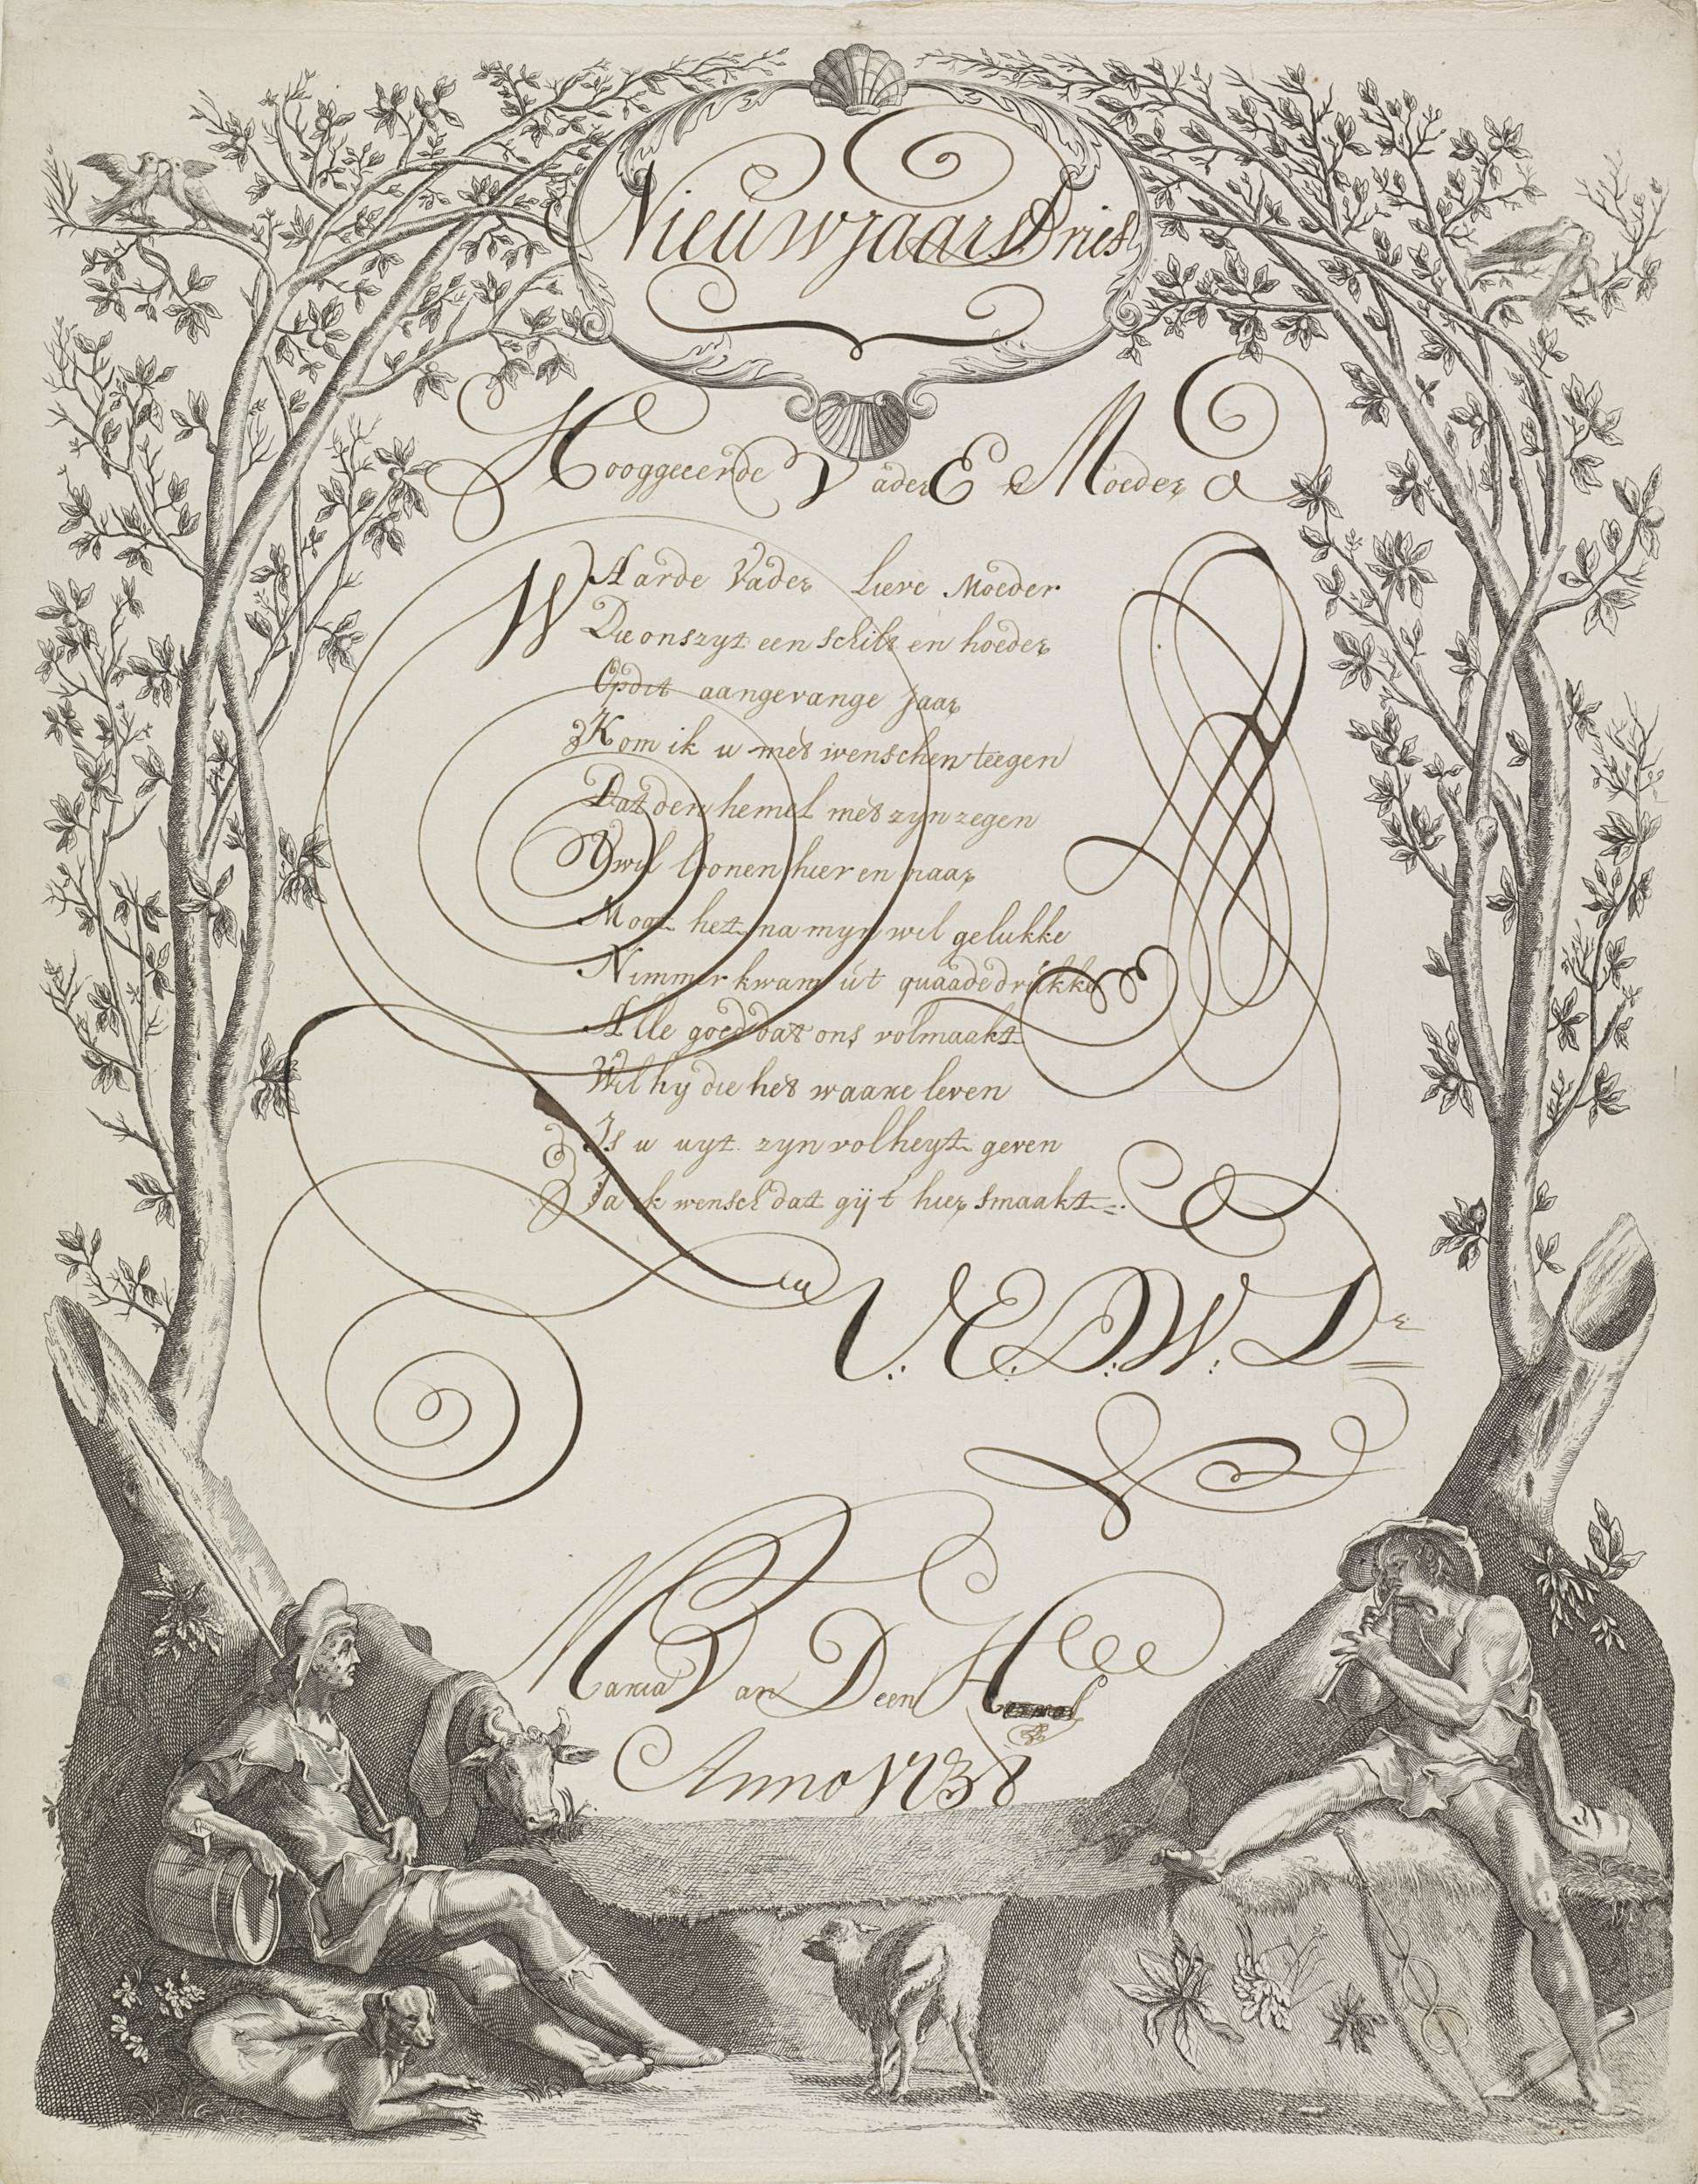 NieuwJaars Brief
Hooggeeerde Vader En Moeder
WAarde Vader Lieve Moeder
Die ons zyt een schilt en hoeder
Op dit aangevange Jaar
Kom ik u met wenschen teegen
Dat den hemel met zyn zegen
U wil loonen hier en naar
Mogt het na myn wil gelukke
Nimmer kwam ut quaade drukke
Alle goed dat ons volmaakt
Wil hy die het waare leven
Is u uyt zyn volheyt geven
Ja ik wensch dat gij t hier smaakt
U.E.D.W. Dr
Maria Van Deen
Anno 1738